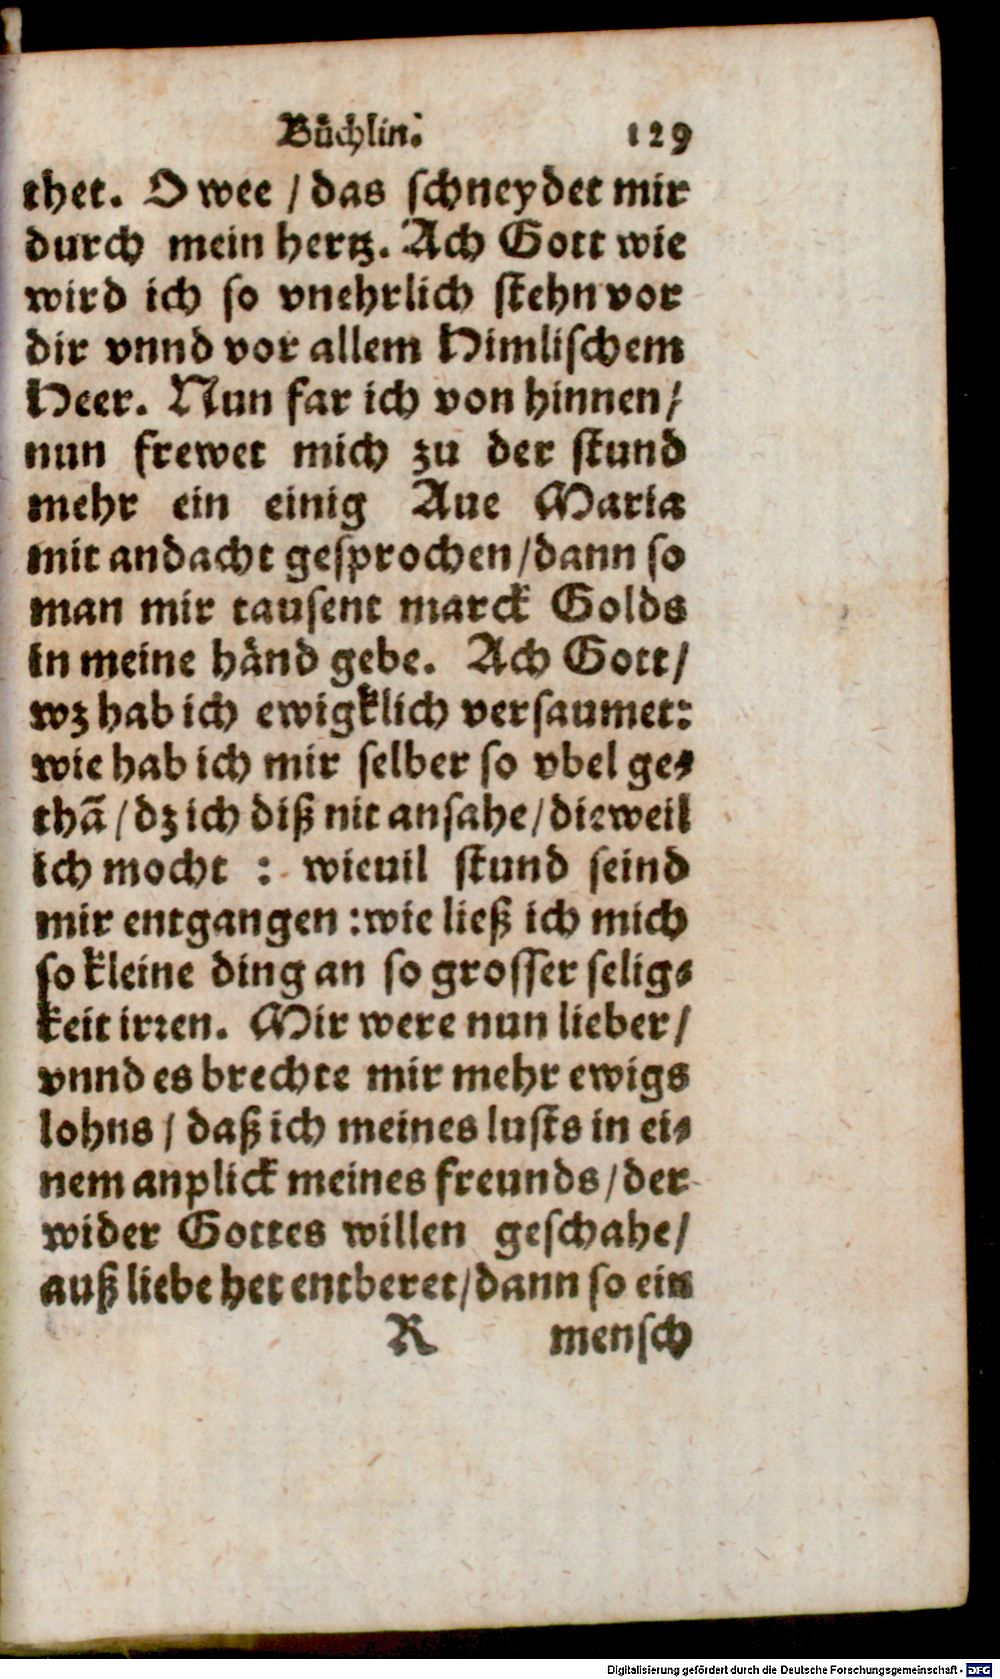 Bůchlin. 129
thet. O wee / das schneydet mir
durch mein hertz. Ach Gott wie
wird ich so vnehrlich stehn vor
dir vnnd vor allem Himlischem
Heer. Nun far ich von hinnen /
nun frewet mich zu der stund
mehr ein einig Aue Maria
mit andacht gesprochen / dann so
man mir tausent marck Golds
in meine hånd gebe. Ach Gott /
wz hab ich ewigklich versaumet:
wie hab ich mir selber so vbel ge-
thã / dz ich diß nit ansahe / dieweil
ich mocht : wieuil stund seind
mir entgangen : wie ließ ich mich
so kleine ding an so grosser selig-
keit irren. Mir were nun lieber /
vnnd es brechte mir mehr ewigs
lohns / daß ich meines lusts in ei-
nem anplick meines freunds / der
wider Gottes willen geschahe /
auß liebe het entberet / dann so ein
R mensch
Digitalisierung gefördert durch die Deutsche Forschungsgemeinschaft - DFG